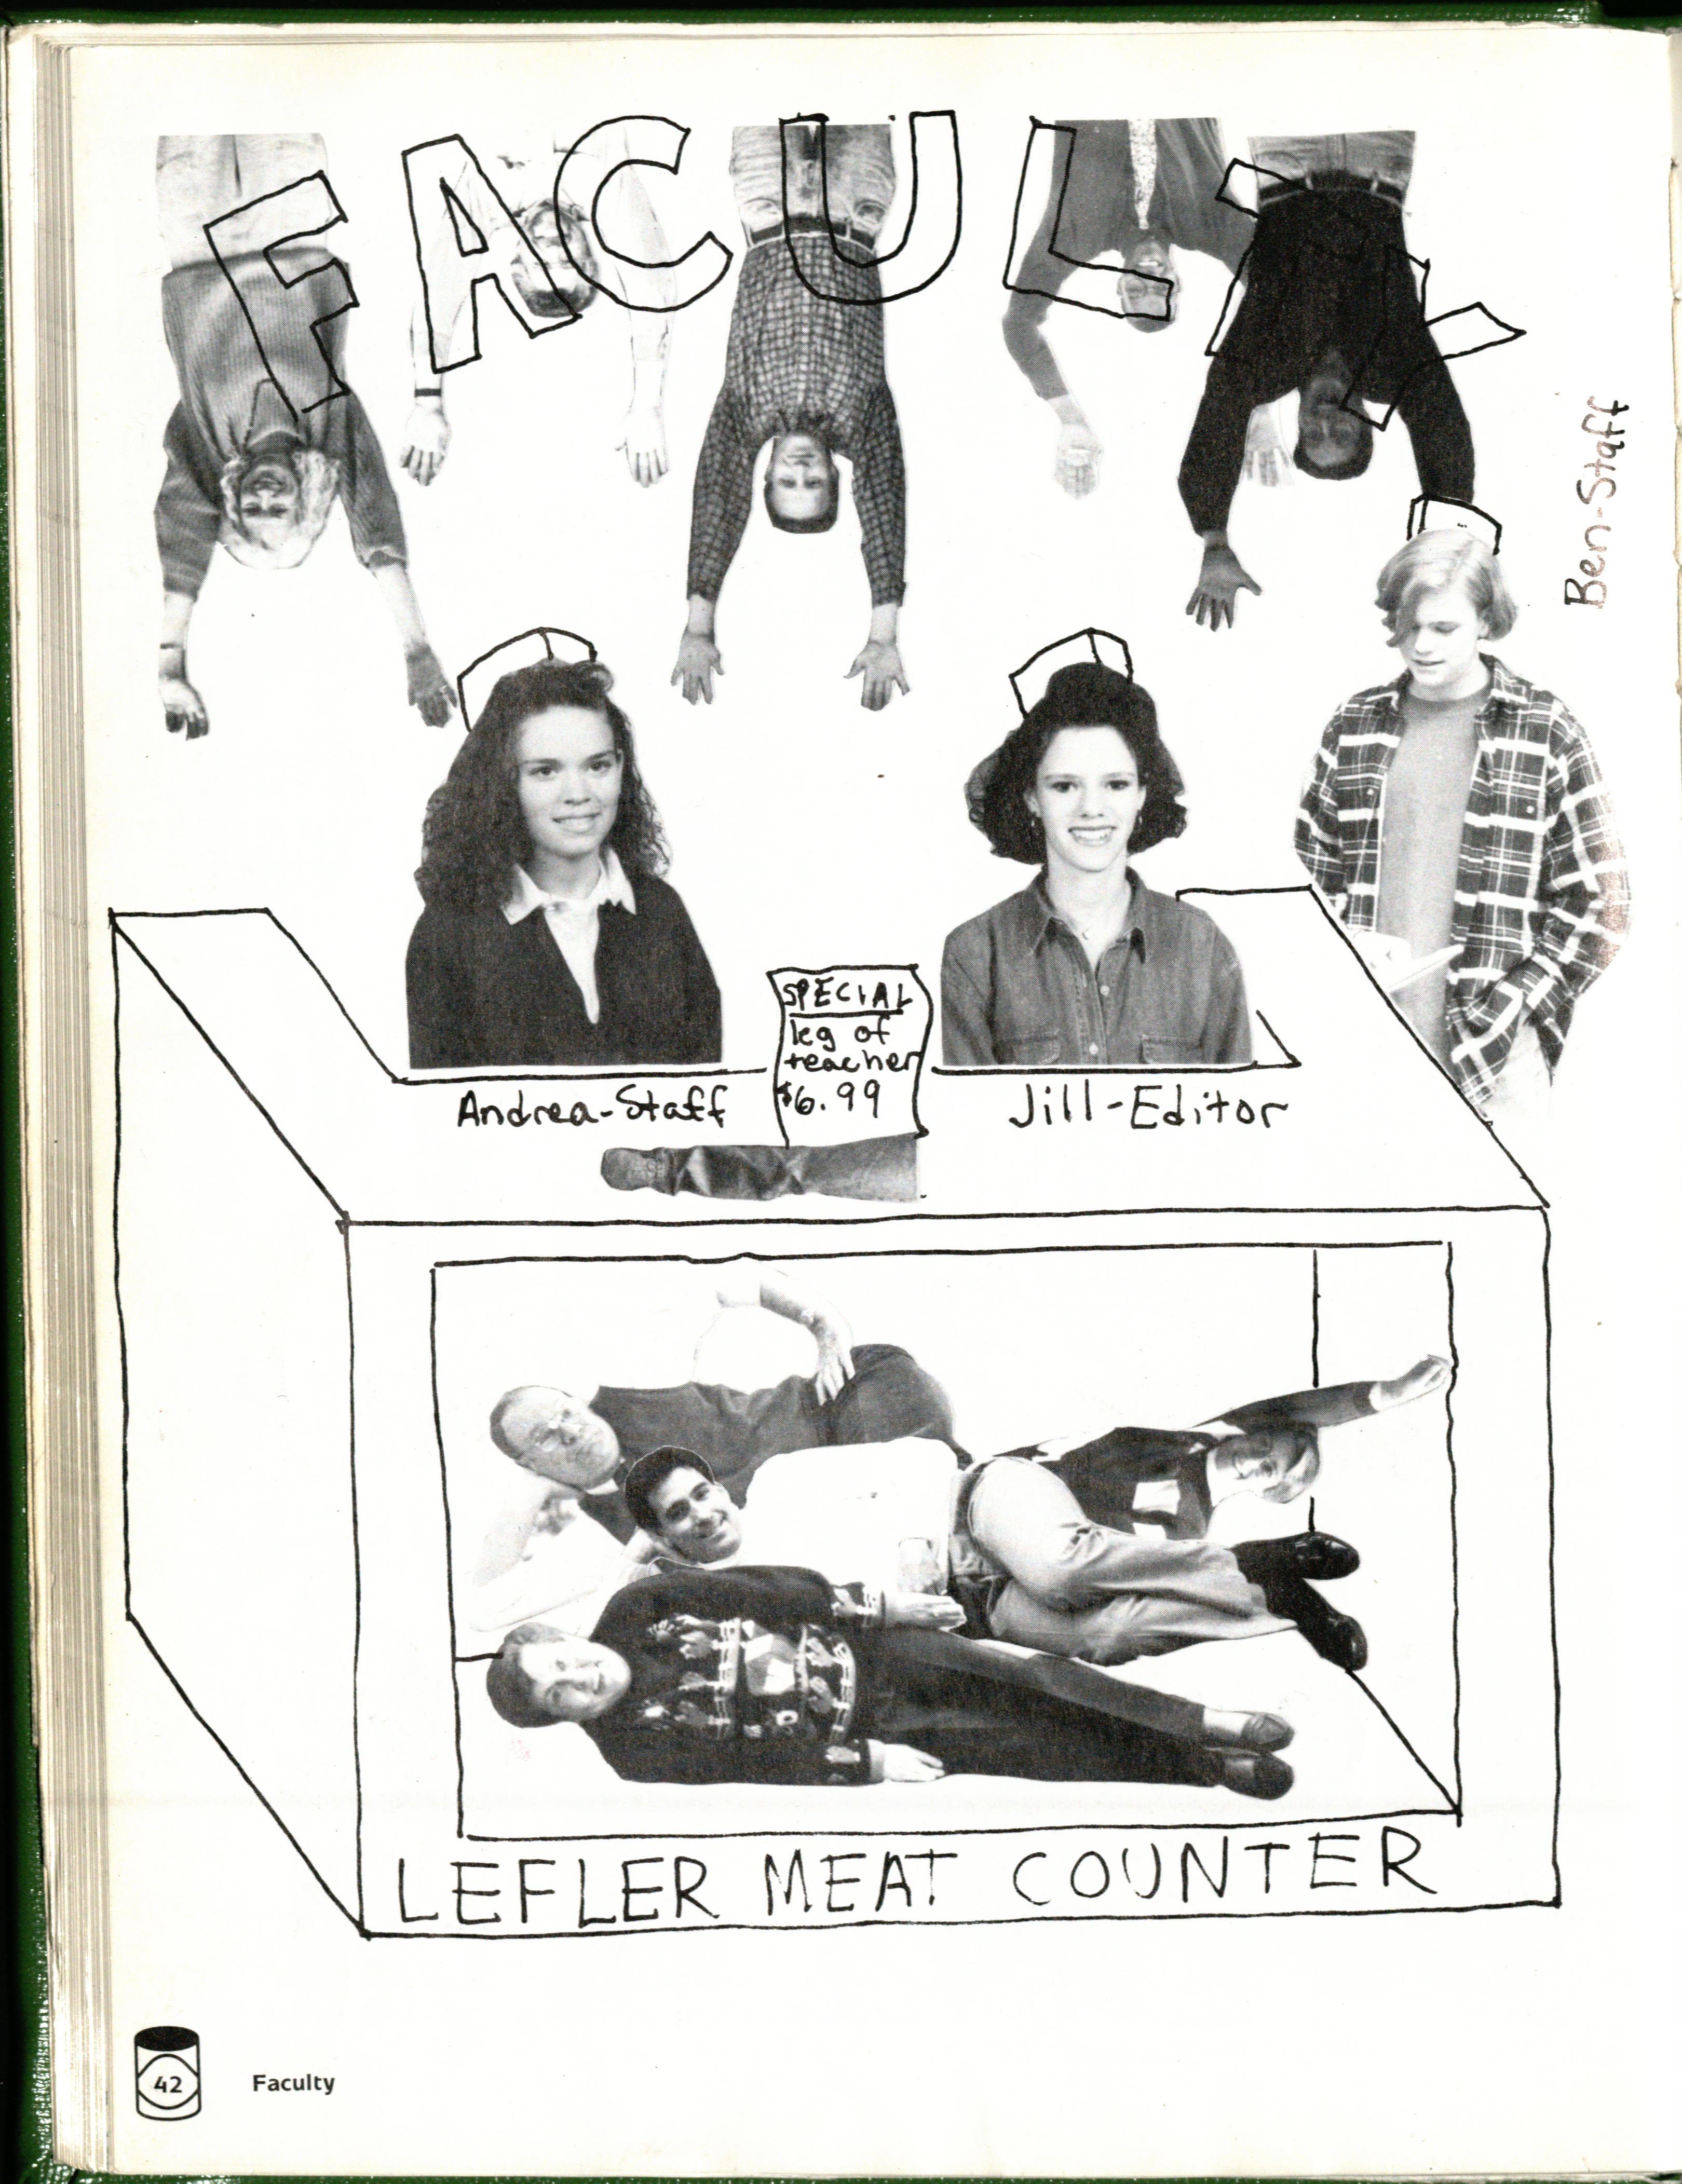 FACULTY
Ben-Staff
SPECIAL
leg of
teacher
$6.99
Andrea-Staff
Jill-Editor
LEFLER MEAT COUNTER
42
Faculty